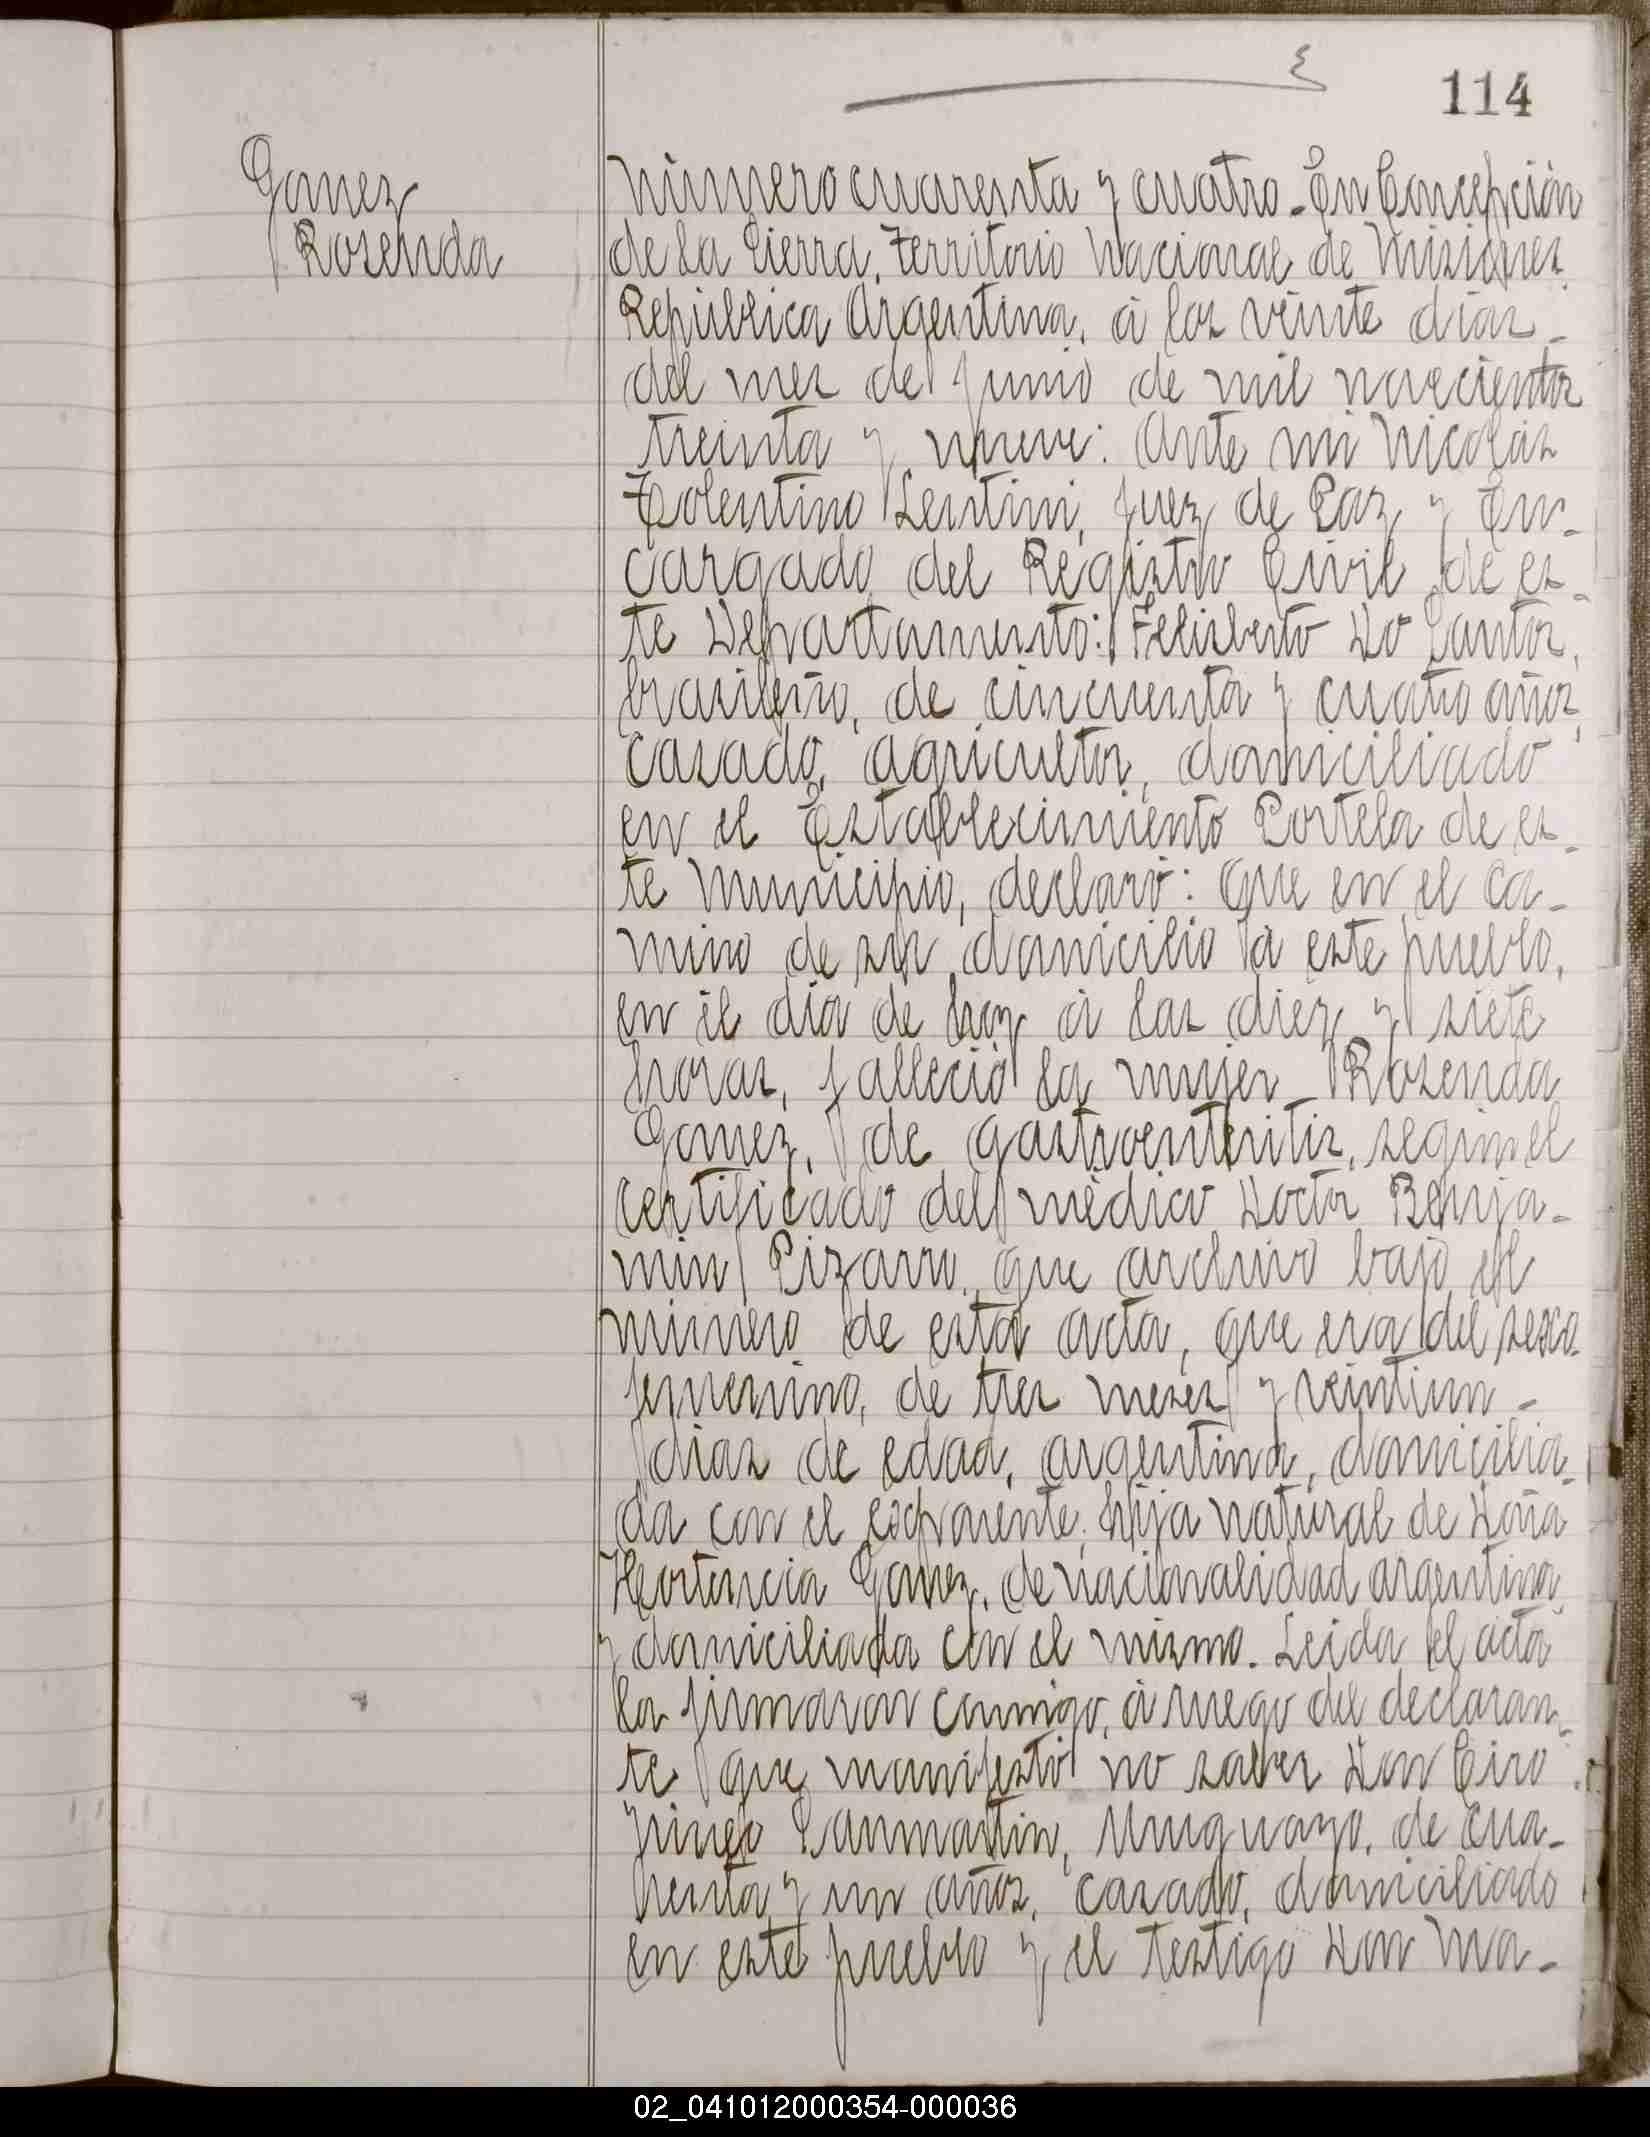 114
Gomez
Rosenda
Número cuarenta y cuatro. En Concepción
de la Sierra, Territorio Nacional de Misiones
República Argentina, á los veinte dias -
del mes de Junio de mil novecientos
treinta y nueve: Ante mi Nicolás
Tolentino Sentini, Juez de Paz y En-
cargado del Registro Civil de es-
te Departamento: Felisberto Do Santos,
brasileño, de cincuenta y cuatro años,
casado, agricultor, domiciliado
en el Establecimiento Portela de es-
te Municipio, declaró: Que en el ca-
mino de su domicilio a este pueblo,
en el día de hoy á las diez y siete
horas, falleció la mujer Rosenda
Gomez, de gastroenteritis, según el
certificado del médico Doctor Benja-
min Pizarro, que archivo bajo el
número de esta acta, que era del sexo
femenino, de tres meses y veintiun -
dias de edad, argentina, domicilia-
da con el exponente, hija natural de Doña
Hortencia Gomez, de nacionalidad argentina
y domiciliada con el mismo. Leida el acta
la firmaron conmigo, á ruego del declaran-
te que manifestó no saber Don Ciro
Sanmartin, Uruguayo, de cua-
renta y un años, casado, domiciliado
en este pueblo y el testigo Don Ma-
02_041012000354-000036